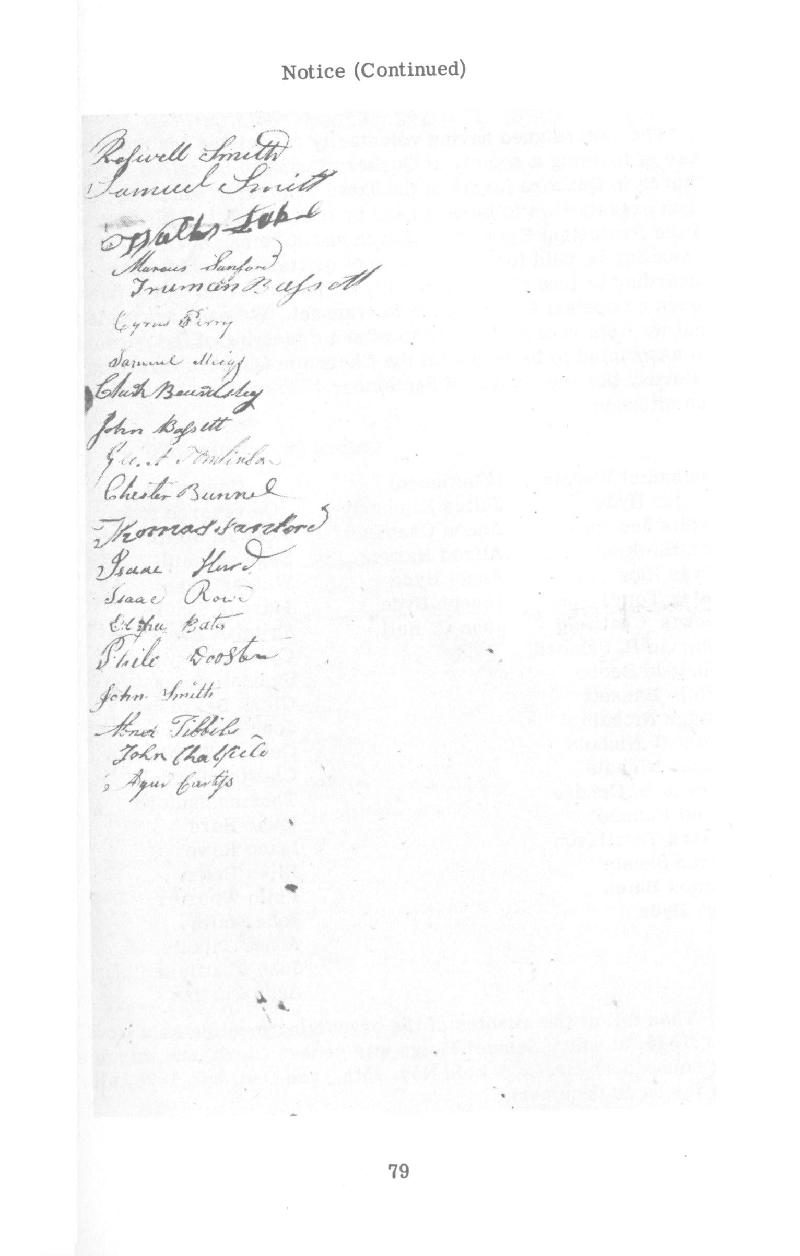 Notice (Continued)
Roswell Smith
Samuel Smith
Marcus Sanford
Truman Bassett
Cyrus Perry
Samuel Meigs
Clark Beardsley
John Bassett
Tomlinson
Chester Bunnel
Thomas Sanford
Isaac Hurd
Isaac Rowe
Bates
John Smith
Abner Tibbils
John Chatfield
Agur Curtiss
79